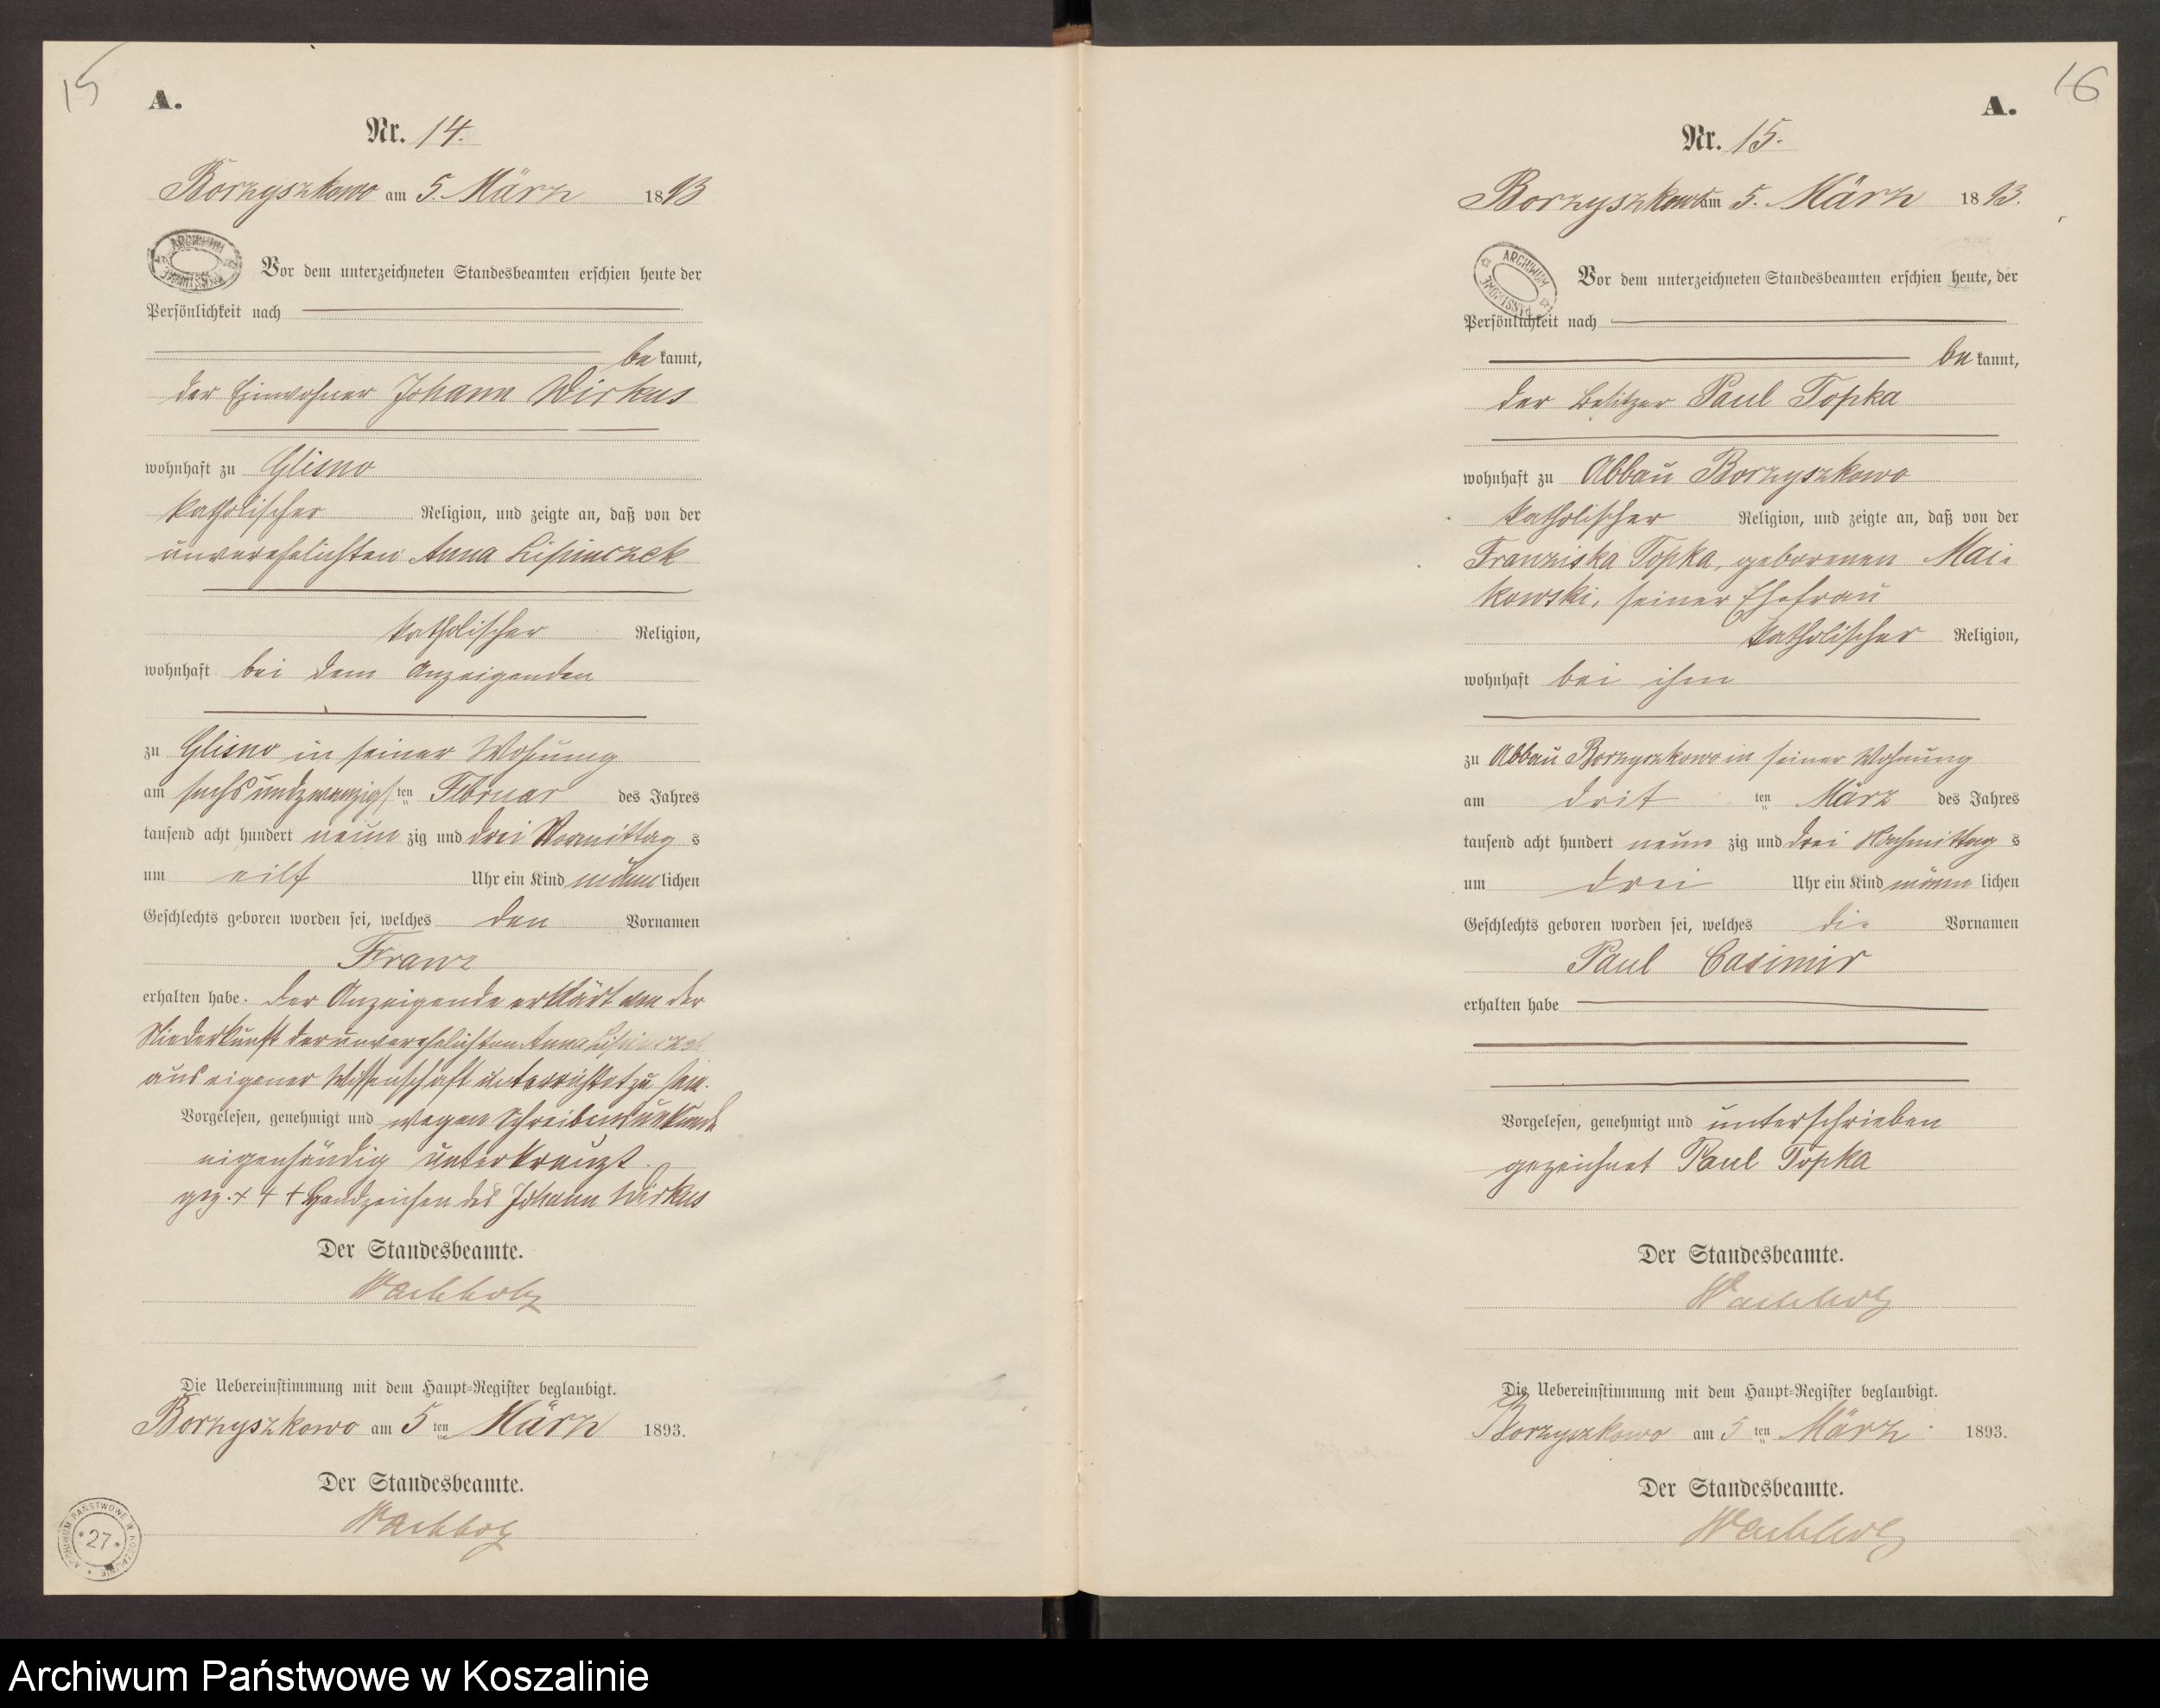 15
A.
Nr. 14.
Borzyszkowo am 5. März 1893
Vor dem unterzeichneten Standesbeamten erschien heute der
Persönlichkeit nach
be kannt,
der Einwohner Johann Wirkus
wohnhaft zu Glisno
katholischer Religion, und zeigte an, daß von der
unverehelichten Anna
katholischer Religion,
wohnhaft bei dem Anzeigenden
zu Glisno in seiner Wohnung
am sechsundzwanzigsten Februar des Jahres
tausend acht hundert neun zig und drei Vormittag s
um eilf Uhr ein Kind männlichen
Geschlechts geboren worden sei, welches den Vornamen
Franz
erhalten habe. Der Anzeigende erklärt von der
Niederkunft der unverehelichten Anna
aus eigener Wissenschaft unterrichtet zu sein.
Vorgelesen, genehmigt und wegen Schreibensunkunde
eigenhändig unterkreuzt.
gez. + + + Handzeichen des Johann Wirkus
Der Standesbeamte.
Wachholz
Die Uebereinstimmung mit dem Haupt-Register beglaubigt.
Borzyszkowo am 5 ten März 1893.
Der Standesbeamte.
Wachholz
ARCHIWUM PAŃSTWOWE W KOSZALINIE
* 27 *
16
A.
Nr. 15.
Borzyszkowo am 5. März 1893.
ARCHIWUM
Vor dem unterzeichneten Standesbeamten erschien heute, der
Persönlichkeit nach
be kannt,
der Besitzer Paul Topka
wohnhaft zu Abbau Borzyszkowo
katholischer Religion, und zeigte an, daß von der
Franziska Topka, geborenen Mai-
kowski, seiner Ehefrau
katholischer Religion,
wohnhaft bei ihm
zu Abbau Borzyszkowo in seiner Wohnung
am drit ten März des Jahres
tausend acht hundert neun zig und drei Nachmittag s
um drei Uhr ein Kind männ lichen
Geschlechts geboren worden sei, welches die Vornamen
Paul Casimir
erhalten habe
Vorgelesen, genehmigt und unterschrieben
gezeichnet Paul Topka
Der Standesbeamte.
Wachholz
Die Uebereinstimmung mit dem Haupt-Register beglaubigt.
Borzyszkowo am 5 ten März 1893.
Der Standesbeamte.
Wachholz
Archiwum Państwowe w Koszalinie